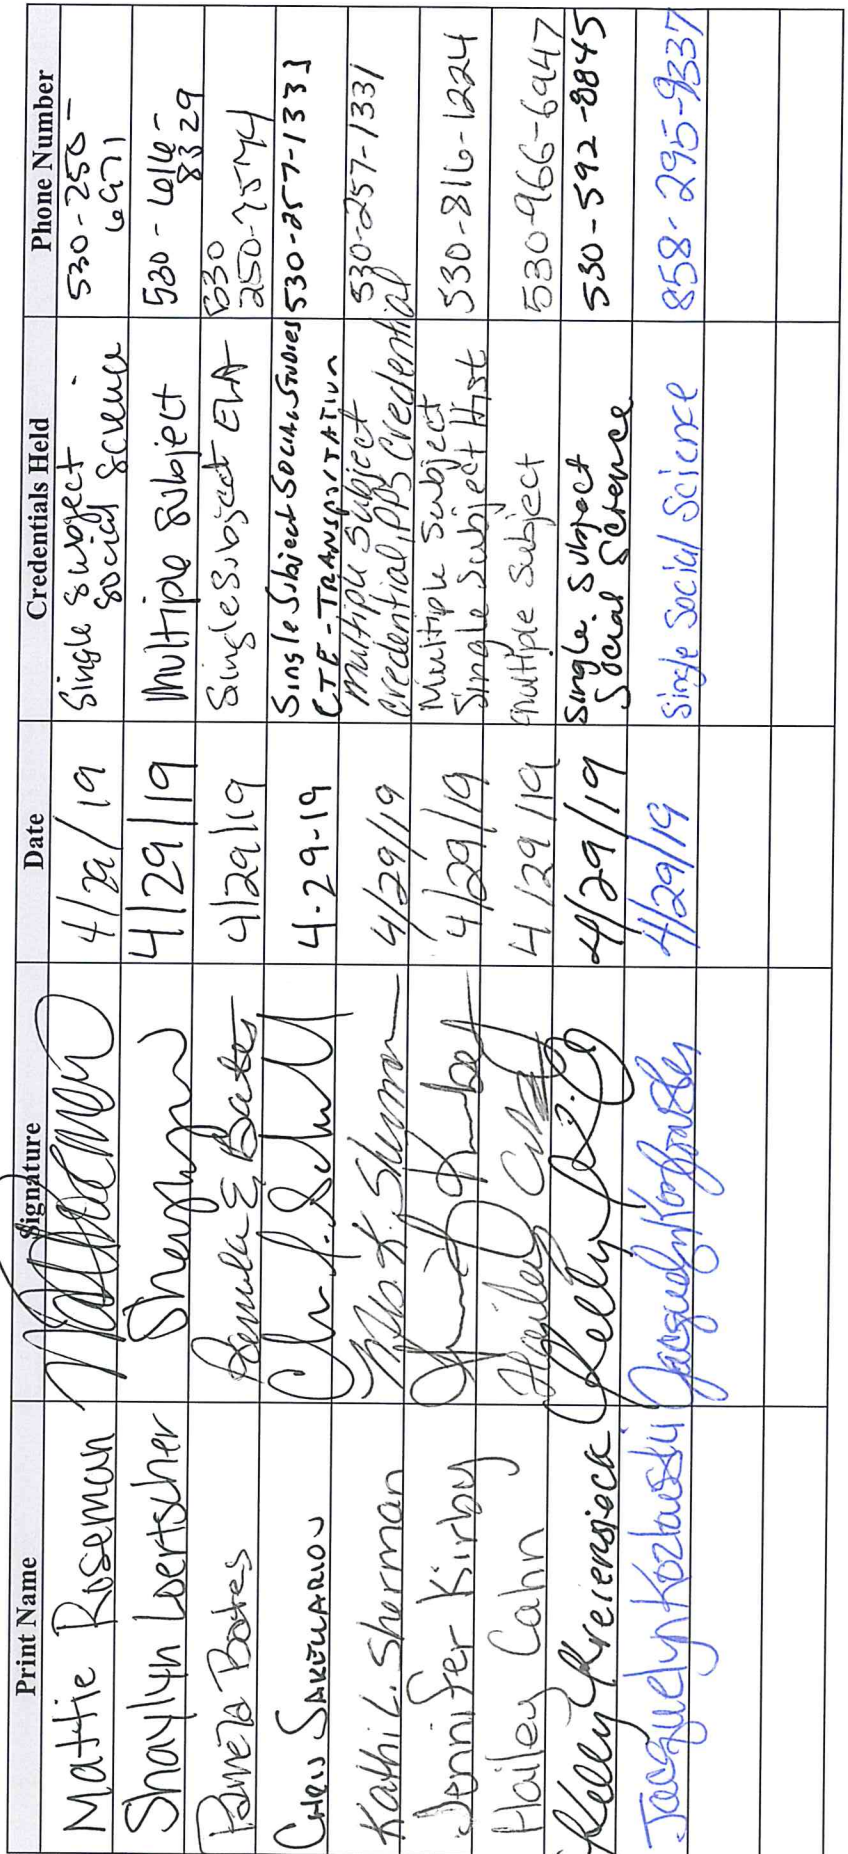 Print Name Signature Date Credentials Held Phone Number
Mattie Roseman 4/29/19 Single Subject Social Science 530-250-6971
Shaylyn Loertscher 4/29/19 Multiple Subject 530-616-8329
Pamela Bates Pamela E Bates 4/29/19 Single Subject ELA 530 250-
Chris 4-29-19 Single Subject Social Studies CTE-TRANSPORTATION 530-257-1333
Kathi L. Sherman K. Sherman 4/29/19 Multiple Subject Credential, PPS Credential 530-257-1331
Jennifer Kirby 4/29/19 Multiple Subject Single Subject Hist 530-816-1224
Hailey Cahn Hailey 4/29/19 Multiple Subject 530-966-6947
Kelly Kreiensieck Kelly 4/29/19 Single Subject Social Science 530-592-8845
Jacquelyn Kozlowski Jacquelyn Kozlowski 4/29/19 Single Social Science 858-295-9337